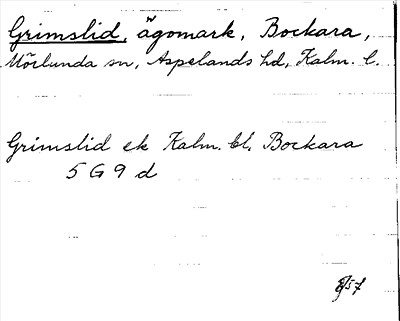 Grimslid, ägomark, Bockara,
Mörlunda sn, Aspelands hd, Kalm. l.
Grimslid ek Kalm. bl. Bockara
5 G 9 d
57